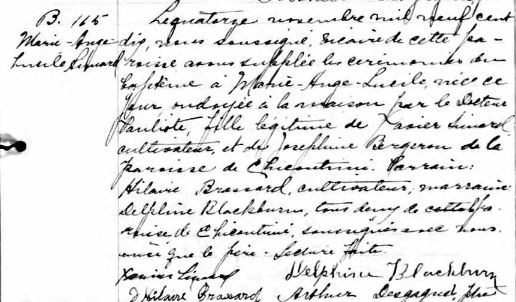 B. 165
Marie-Ange
Lucile Simard
Le quatorze novembre mil neuf cent
dix, nous soussigné, vicaire de cette pa-
roisse avons supplée les cérémonies du
baptême à Marie-Ange-Lucile, née ce
jour ondoyée à la maison par le Docteur
fille légitime de Xavier Simard,
cultivateur, et de Joséphine Bergeron de la
paroisse de Chicoutimi. Parrain:
Hilaire Brassard, cultivateur, marraine
Delphine Blackburn, tous deux de cette pa-
roisse de Chicoutimi, soussignés avec nous
ainsi que le père. Lecture faite.
Xavier Simard Delphine Blackburn
Hilaire Brassard Arthur Desgagné, ptre